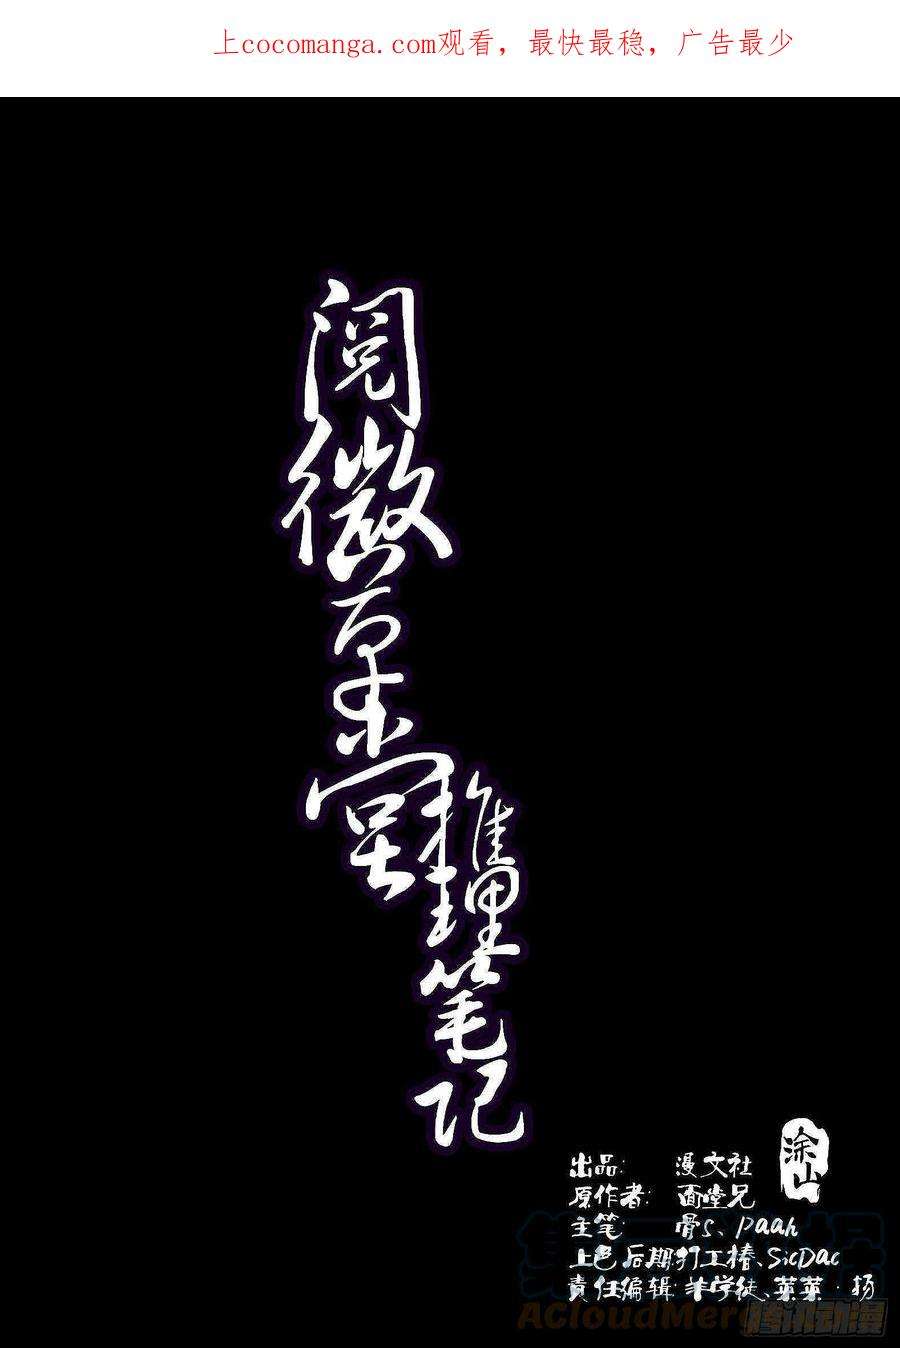 上cocomanga.com观看，最快最稳，广告最少
阅微草堂
推理笔记
涂山
出品： 漫文社
原作者： 面堂兄
主笔： 骨S、paah
上色后期：打工椿、SicDac
責任编辑：羊学徒、菜菜·扬
ACloudMerge